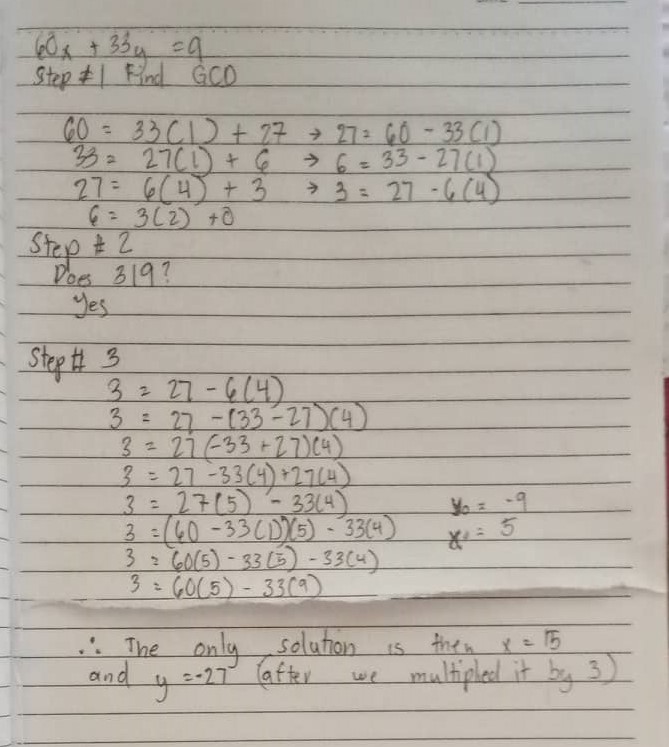 60x + 33y = 9
Step #1 Find GCD
60 = 33(1) + 27 → 27 = 60 - 33(1)
33 = 27(1) + 6 → 6 = 33 - 27(1)
27 = 6(4) + 3 → 3 = 27 - 6(4)
6 = 3(2) + 0
Step # 2
Does 3|9?
Yes
Step # 3
3 = 27 - 6(4)
3 = 27 - (33 - 27)(4)
3 = 27 (-33 + 27)(4)
3 = 27 - 33(4) + 27(4)
3 = 27(5) - 33(4)
3 = (60 - 33(1))(5) - 33(4)
3 = 60(5) - 33(5) - 33(4)
3 = 60(5) - 33(9)
y₀ = -9
x₀ = 5
∴ The only solution is then x = 15
and y = -27 (after we multiplied it by 3)